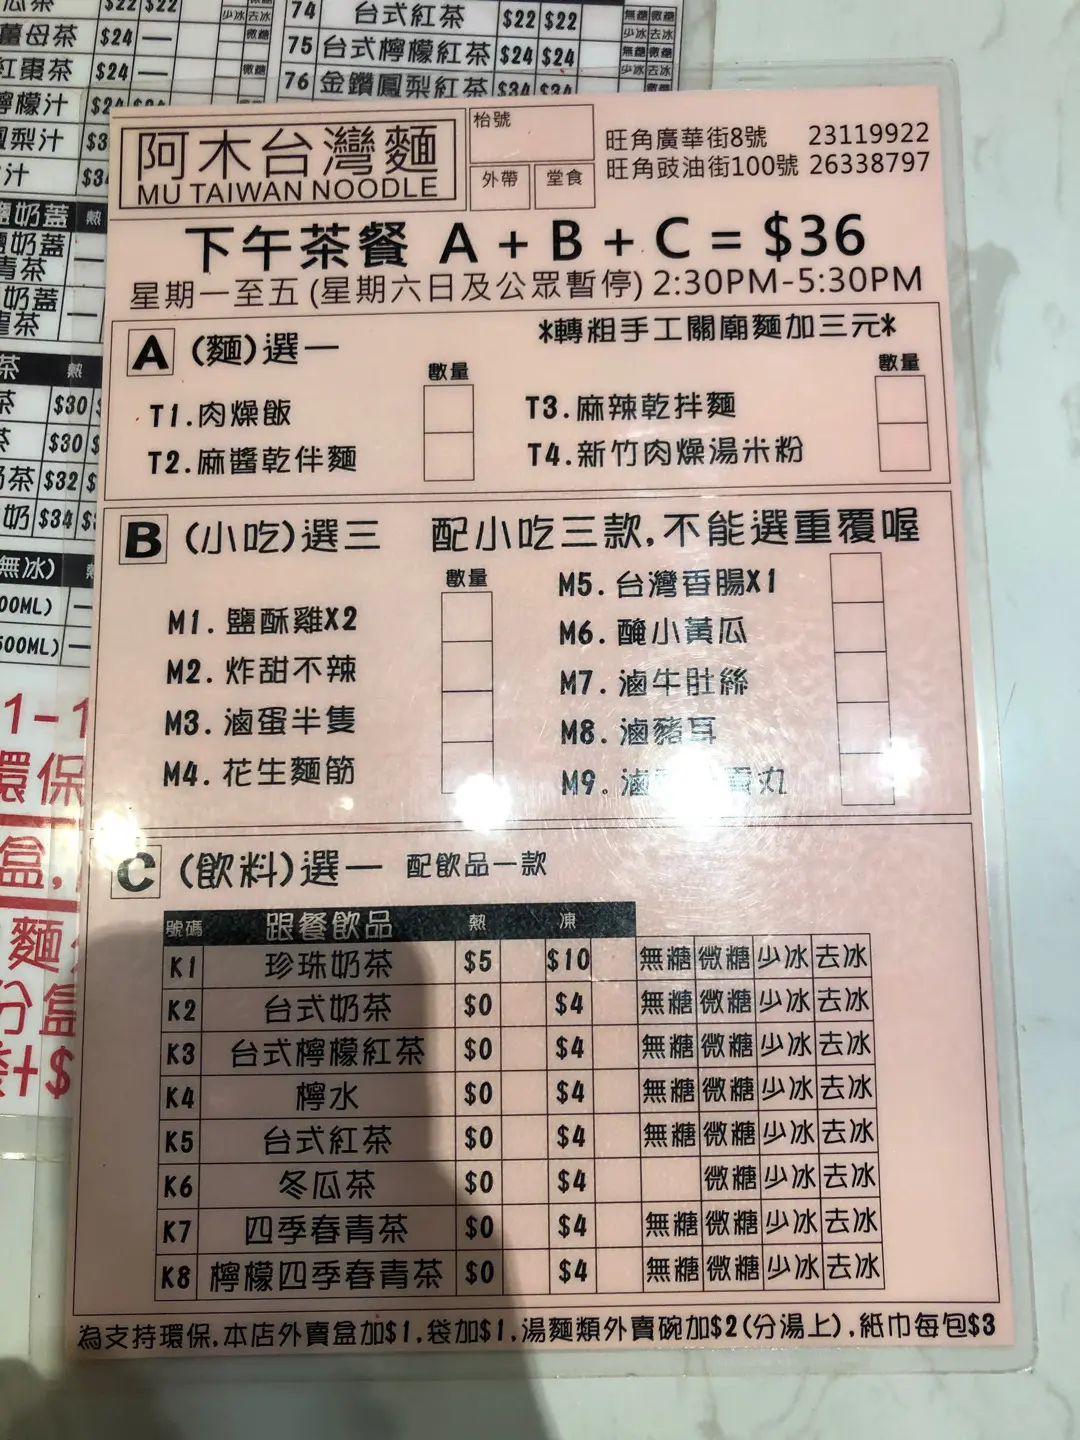 瓜茶 $22 $22 少冰 去冰
薑母茶 $24 — 微糖
紅棗茶 $24 — 微糖
檸檬汁 $24 $24
鳳梨汁 $3
汁 $34
74 台式紅茶 $22 $22 無糖 微糖 少冰 去冰
75 台式檸檬紅茶 $24 $24 無糖 微糖 少冰 去冰
76 金鑽鳳梨紅茶 $34 $34 微糖
鹽奶蓋 熱
鹽奶蓋
青茶 —
奶蓋
龍茶 —
茶 熱
茶 $30
茶 $30
奶茶 $32
奶 $34
無冰)
00ML) —
500ML) —
1-1
環保
盒,
麵
分盒
+$
阿木台灣麵
MU TAIWAN NOODLE
枱號
外帶 堂食
旺角廣華街8號 23119922
旺角豉油街100號 26338797
下午茶餐 A + B + C = $36
星期一至五 (星期六日及公眾暫停) 2:30PM-5:30PM
A (麵)選一 *轉粗手工關廟麵加三元*
數量 數量
T1.肉燥飯 T3.麻辣乾拌麵
T2.麻醬乾伴麵 T4.新竹肉燥湯米粉
B (小吃)選三 配小吃三款,不能選重覆喔
數量
M1. 鹽酥雞X2
M2. 炸甜不辣
M3. 滷蛋半隻
M4. 花生麵筋
M5. 台灣香腸X1
M6. 醃小黃瓜
M7. 滷牛肚絲
M8. 滷豬耳
M9. 滷 貢丸
C (飲料)選一 配飲品一款
號碼 跟餐飲品 熱 凍
K1 珍珠奶茶 $5 $10 無糖 微糖 少冰 去冰
K2 台式奶茶 $0 $4 無糖 微糖 少冰 去冰
K3 台式檸檬紅茶 $0 $4 無糖 微糖 少冰 去冰
K4 檸水 $0 $4 無糖 微糖 少冰 去冰
K5 台式紅茶 $0 $4 無糖 微糖 少冰 去冰
K6 冬瓜茶 $0 $4 微糖 少冰 去冰
K7 四季春青茶 $0 $4 無糖 微糖 少冰 去冰
K8 檸檬四季春青茶 $0 $4 無糖 微糖 少冰 去冰
為支持環保,本店外賣盒加$1.袋加$1.湯麵類外賣碗加$2(分湯上).紙巾每包$3